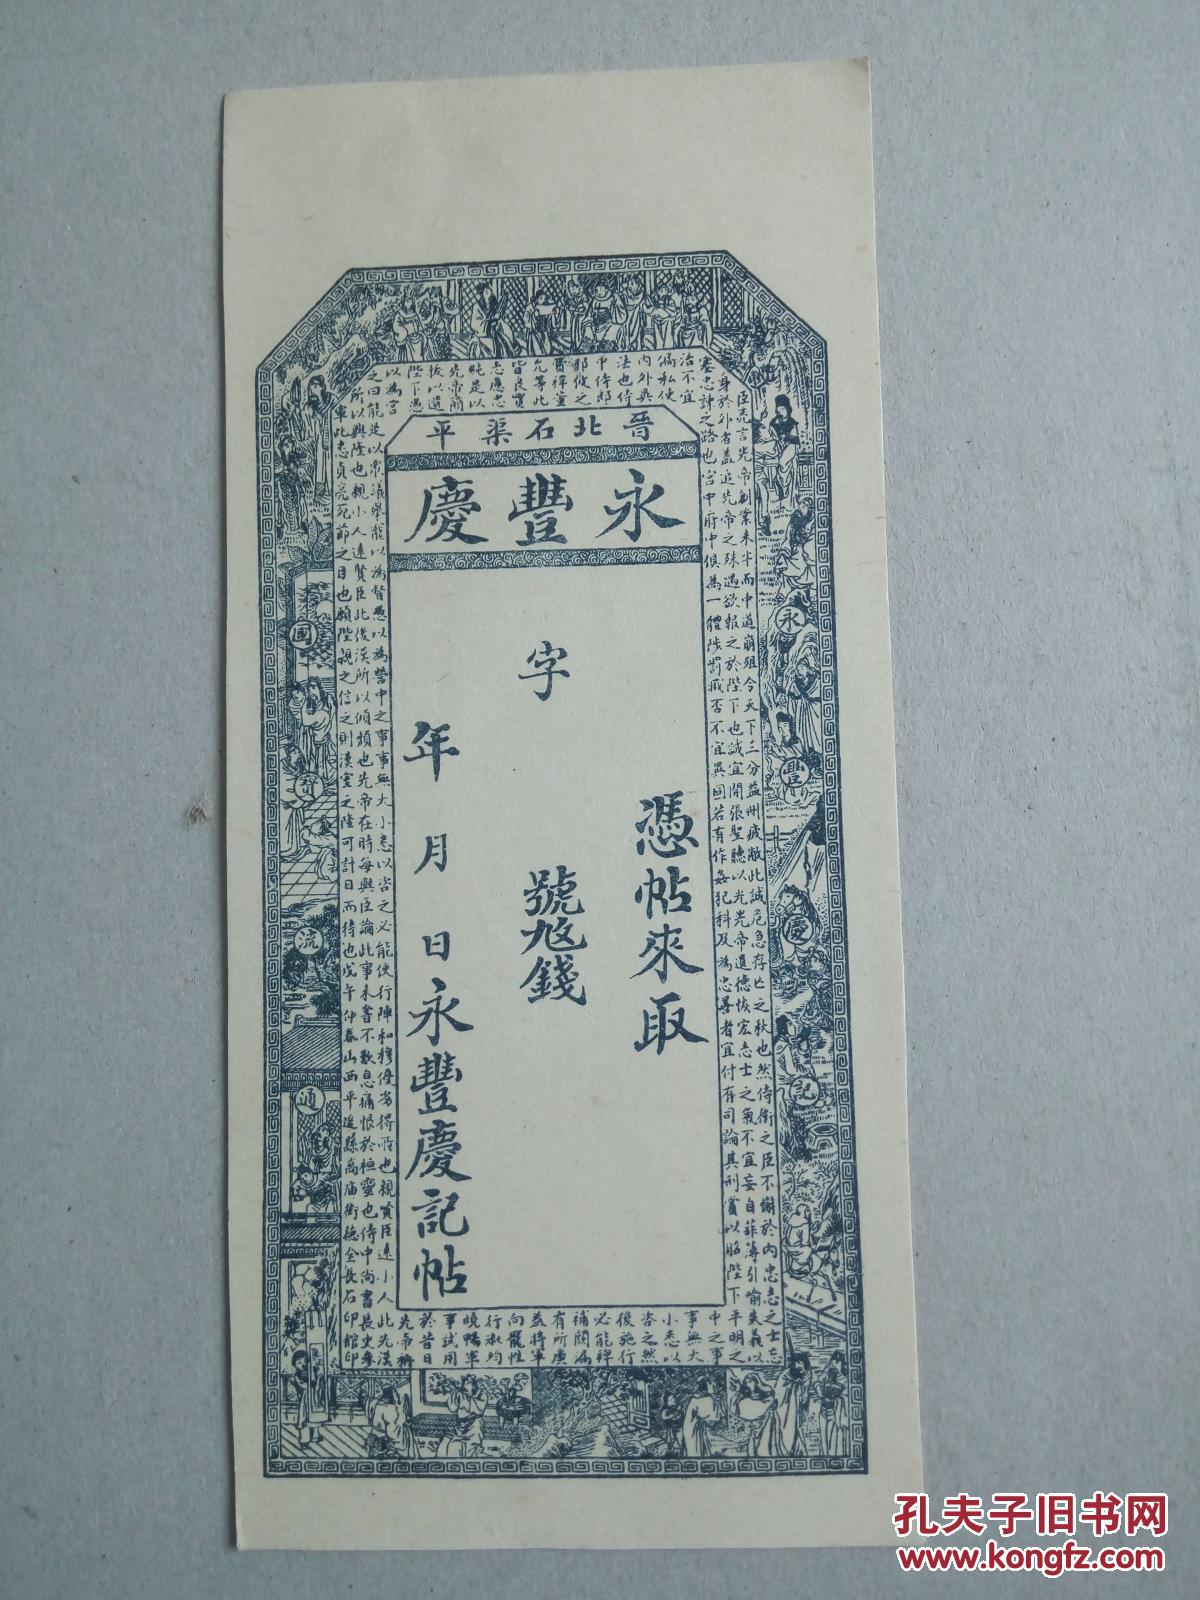 晉北石渠平
永豐慶
憑帖來取
字
號
錢
年
月
日永豐慶記帖
永
豐
慶
記
國
寶
流
通
臣亮言先帝創業未半而中道崩殂今天下三分益州疲敝此誠危急存亡之秋也然侍衛之臣不懈於內忠志之士忘
身於外者蓋追先帝之殊遇欲報之於陛下也誠宜開張聖聽以光先帝遺德恢宏志士之氣不宜妄自菲薄引喻失義以
塞忠諫之路也宮中府中俱為一體陟罰臧否不宜異同若有作姦犯科及為忠善者宜付有司論其刑賞以昭陛下平明之
治不宜
偏私使
內外異
法也侍
中侍郎
郭攸之
費禕董
允等此
皆良實
志慮忠
純是以
先帝簡
拔以遺
陛下愚
以為宮
中之事
事無大
小悉以
咨之然
後施行
必能裨
補闕漏
有所廣
益將軍
向寵性
行淑均
曉暢軍
事試用
於昔日
先帝稱
之曰能是以眾議舉寵以為督愚以為營中之事事無大小悉以咨之必能使行陣和穆優劣得所也親賢臣遠小人此先漢
所以興隆也親小人遠賢臣此後漢所以傾頹也先帝在時每與臣論此事未嘗不歎息痛恨於桓靈也侍中尚書長史參
軍此悉貞亮死節之臣也願陛親之信之則漢室之隆可計日而待也戊午仲春山西平遙縣高庙街德全長石印館印
孔夫子旧书网
www.kongfz.com